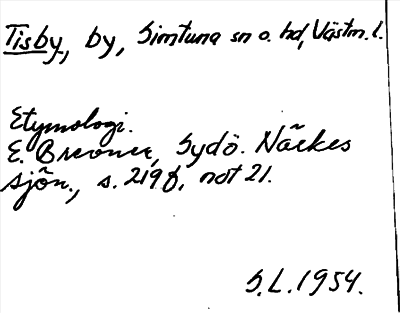 Tisby, by, Simtuna sn o. hd, Västm. l.
Etymologi.
E. Brevner, Sydö. Närkes
sjön., s. 219 f, not 21.
S.L. 1954.